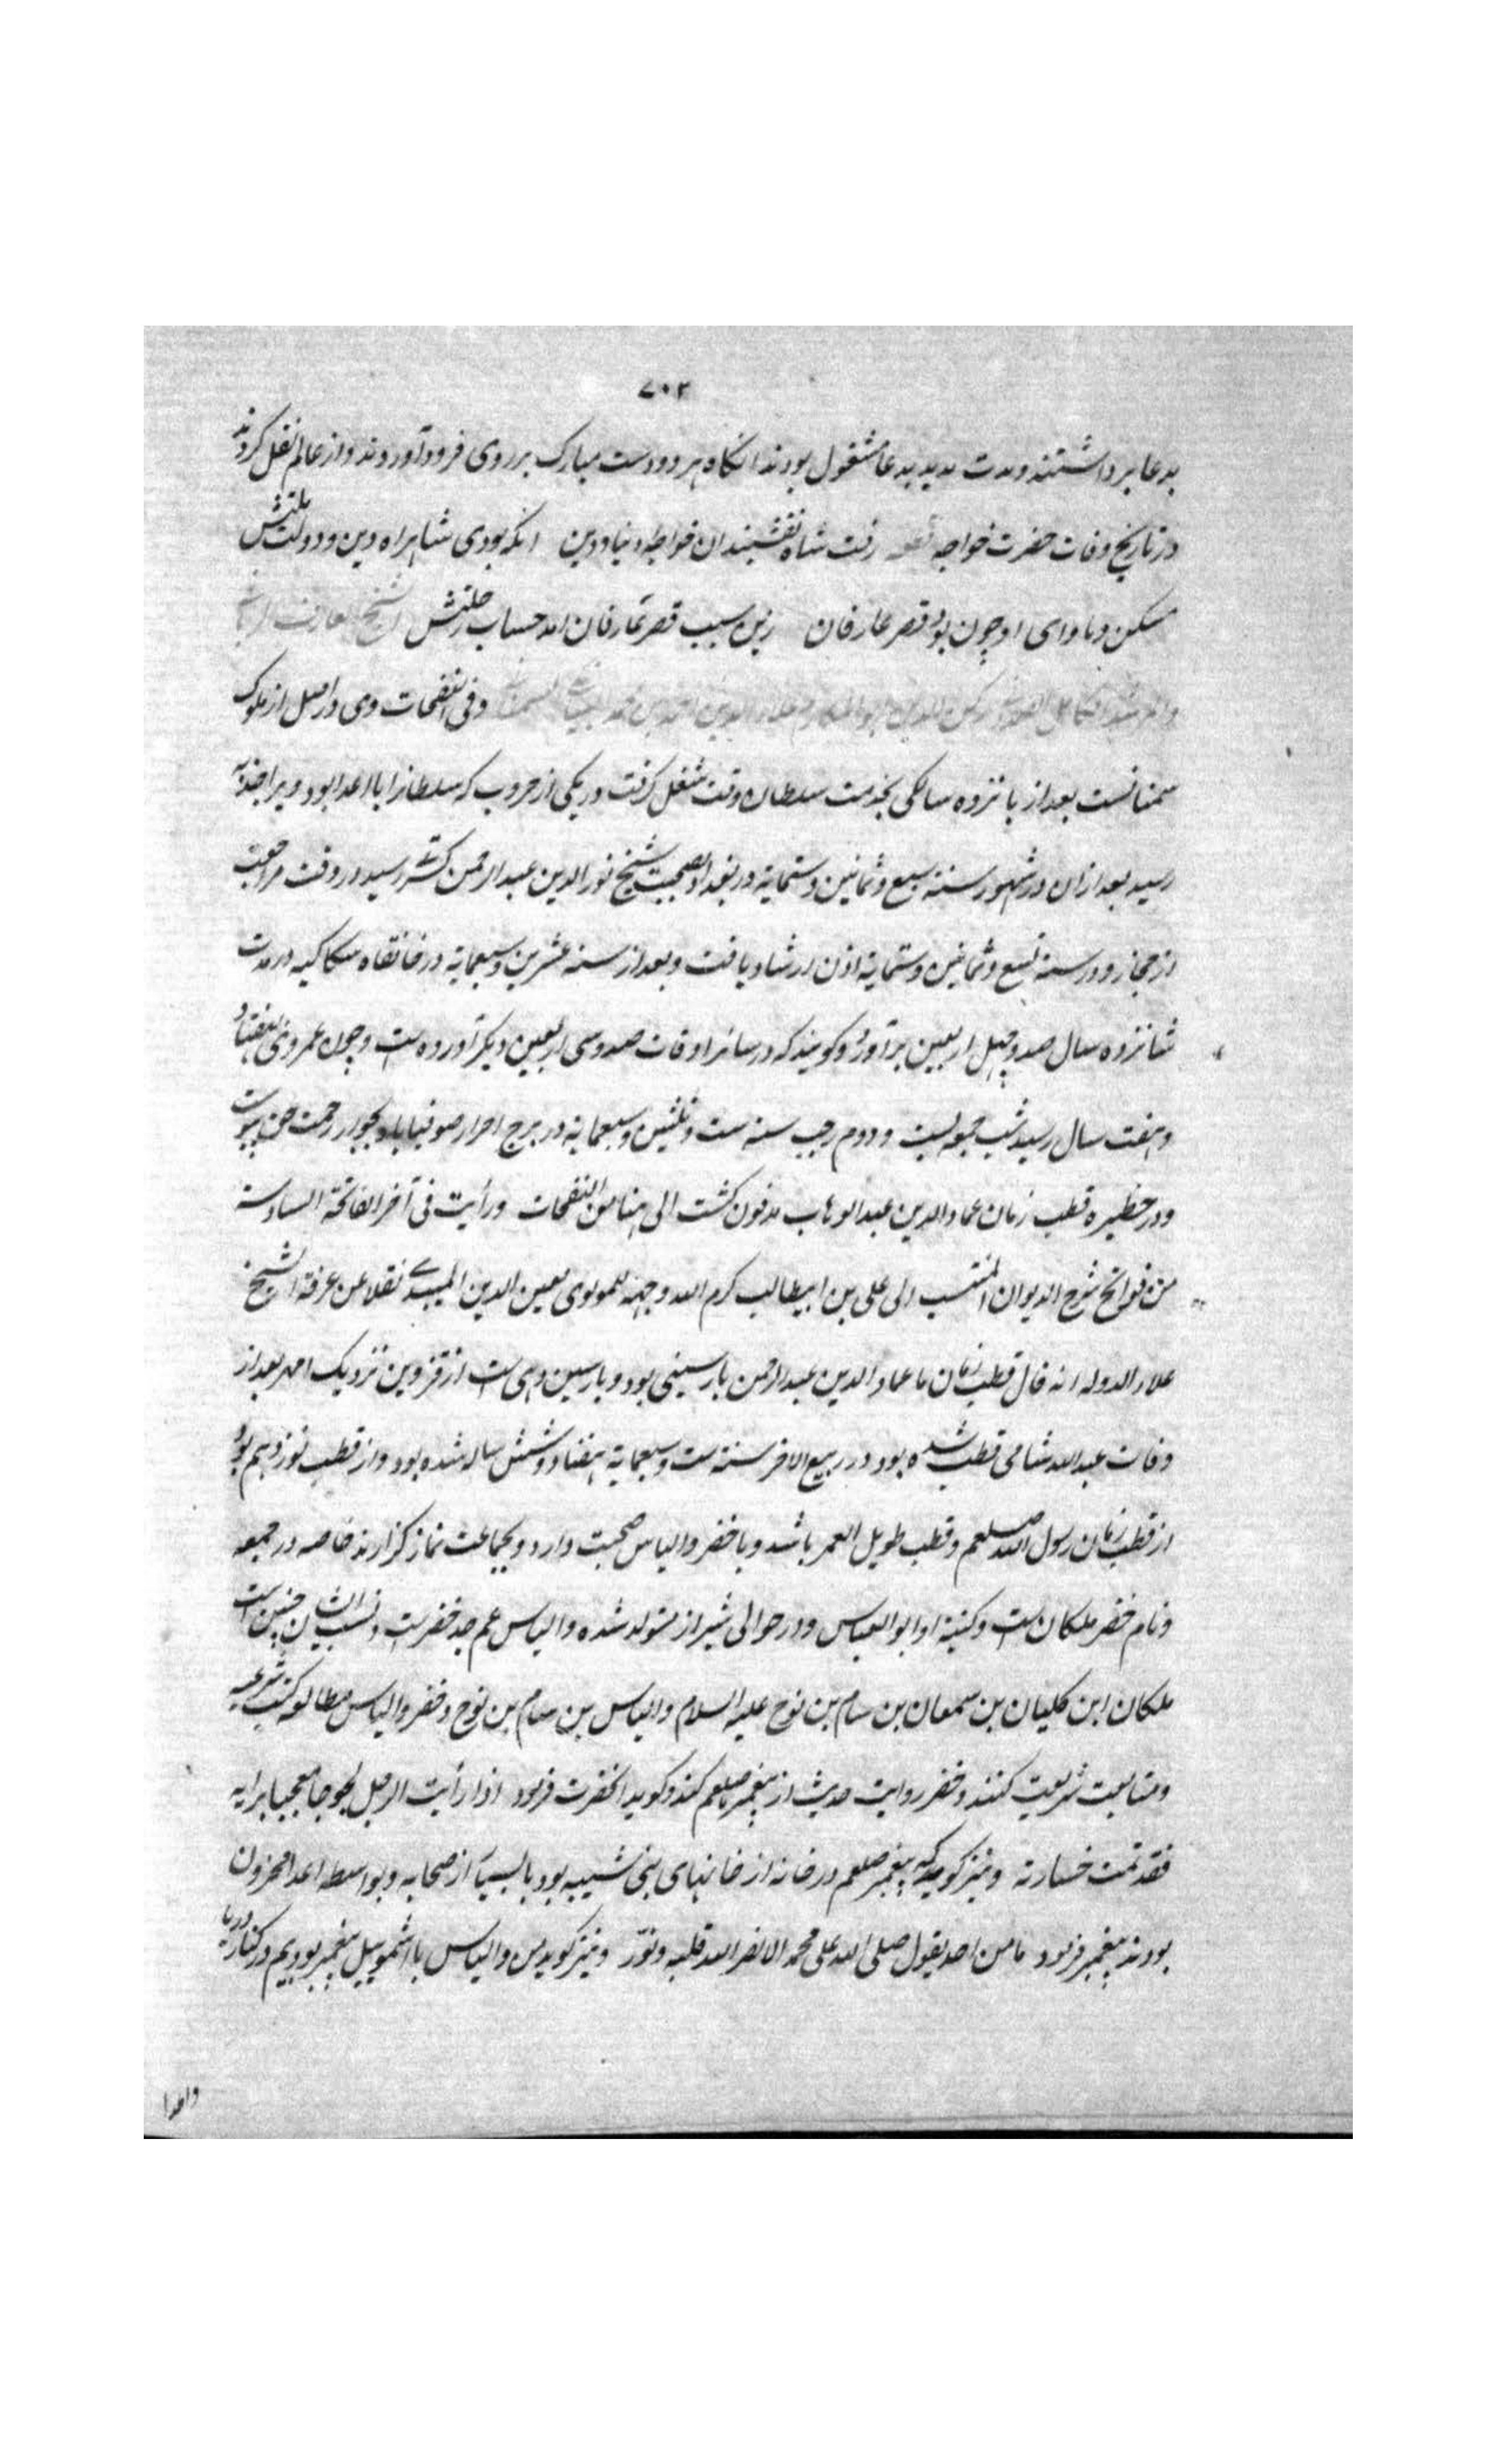 ۷۰۳
بدعا برداشتند و مدت مدید بدعا مشغول بودند انگاه هر دو دست مبارک بر روی فرود آوردند و از عالم نقل کردند
در تاریخ وفات حضرت خواجه قطعه رفت شاه نقشبندان خواجهٔ دنیا و دین انکه بودی شاهراه دین و دولت ملتش
مسکن و ماوای او چون بود قصر عارفان زین سبب قصر عارفان امد حساب رحلتش الشیخ العارف الربانی
والمرشد الکامل الصمدانی رکن الدین ابو المکارم علاء الدین احمد بن محمد البیابانکی السمنانی وفی النفحات وی در اصل از ملوک
سمنانست بعد از پانزده سالکی بخدمت سلطان وقت شغل کرفت در یکی از حروب که سلطانرا با اعدا بود ویرا جذبه
رسید بعد ازان در شهور سنة سبع وثمانین وستمایة در بغداد بصحبت شیخ نور الدین عبد الرحمن کسرقی رسید در وقت مراجعت
از حجاز و در سنة تسع وثمانین وستمایة اذن ارشاد یافت و بعد از سنه عشرین وسبعمایة در خانقاه سکاکیه در مدت
شانزده سال صد و چهل اربعین برآورد و کویند که در سائر اوقات صد و سی اربعین دیکر آورده ست و چون عمر وی بهفتاد
و هفت سال رسید شب جمعه بیست و دوم رجب سنه ست وثلثین وسبعمایة در برج احرار صوفیاباد بجوار رحمت حق پیوست
و در حظیره قطب زمان عماد الدین عبد الوهاب مدفون کشت الی هنا من النفحات ورأیت فی آخر الفاتحة السادسة
من فواتح شرح الدیوان المنتسب الی علی بن ابیطالب کرم الله وجهه للمولوی معین الدین المیبدی نقلا عن عرفة الشیخ
علاء الدوله انه قال قطب زمان ما عماد الدین عبد الرحمن بارسینی بود و بارسین دهی ست از قزوین نزدیک ابهر بعد از
وفات عبد الله شامی قطب شده بود در ربیع الاخر سنة ست وسبعمایة هفتاد و شش ساله شده بود و از قطب نوزدهم بود
از قطب زمان رسول الله صلعم و قطب طویل العمر باشد و با خضر و الیاس صحبت دارد و بجماعت نماز کزارند خاصه در جمعه
و نام خضر ملکان ست و کنیه او ابو العباس و در حوالی شیراز متولد شده و الیاس عم جد خضرست و نسب ایشان چنین است
ملکان ابن کلیان بن سمعان بن سام بن نوح علیه السلام و الیاس بن سام بن نوح و خضر و الیاس مطالعه کتب شرعیه
و متابعت شریعت کنند و خضر روایت حدیث از پیغمبر صلعم کند و کوید انحضرت فرمود اذا رأیت الرجل لجوجا معجبا برایه
فقد تمت خسارته و نیز کوید که پیغمبر صلعم در خانه از خانهای بنی شیبه بود با بسیاری از صحابه و بواسطه اعدا محزون
بودند پیغمبر فرمود ما من احد یقول صلی الله علی محمد الا نضر الله قلبه ونوّر و نیز کوید من و الیاس با اشموییل پیغمبر بودیم در کنار دریا
واعدا